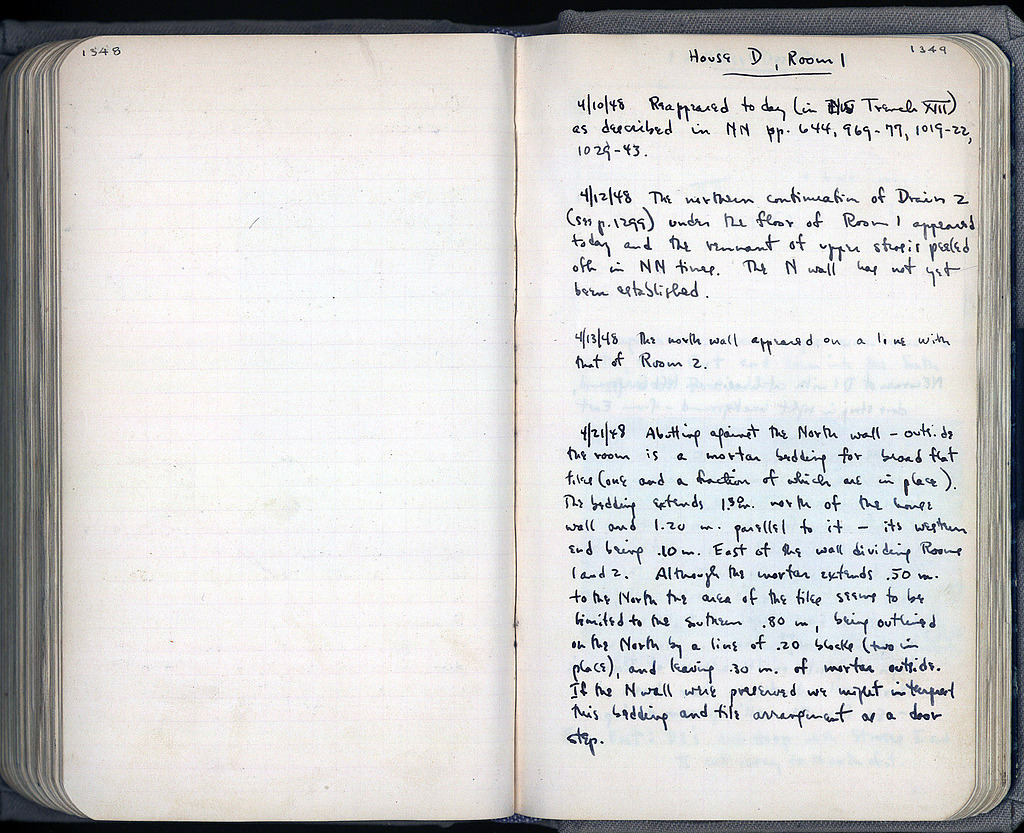 1348
1349
House D, Room 1
4/10/48 Reappeared today (in Trench XIII)
as described in NN pp. 644, 969-77, 1019-22,
1029-43.
4/12/48 The northern continuation of Drain 2
(see p. 1299) under the floor of Room 1 appeared
today and the remnant of upper strosis peeled
off in NN times. The N wall has not yet
been established.
4/13/48 The north wall appeared on a line with
that of Room 2.
4/21/48 Abutting against the North wall – outside
the room is a mortar bedding for broad flat
tiles (one and a fraction of which are in place).
The bedding extends m. north of the house
wall and 1.20 m. parallel to it – its western
end being .10 m. East of the wall dividing Rooms
1 and 2. Although the mortar extends .50 m.
to the North the area of the tiles seems to be
limited to the southern .80 m, being outlined
on the North by a line of .20 blocks (two in
place), and leaving .30 m. of mortar outside.
If the N wall were preserved we might interpret
this bedding and tile arrangement as a door
step.